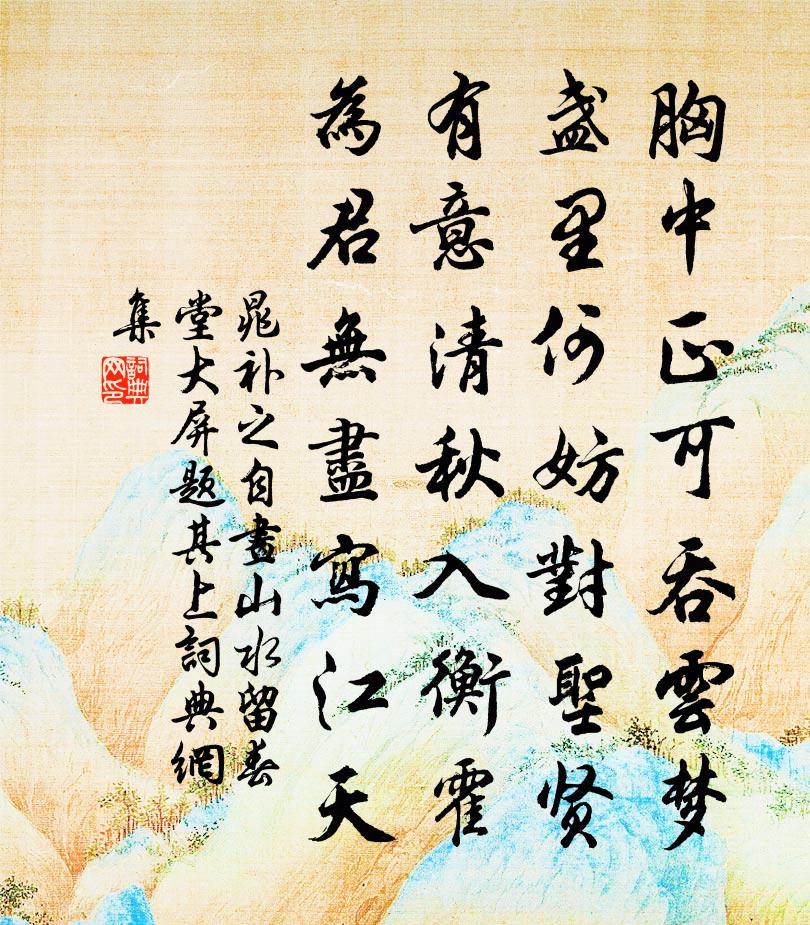 胸中正可吞雲梦
盏里何妨對聖贤
有意清秋入衡霍
為君無盡寫江天
晁补之自畫山水留春
堂大屏題其上詞典網
集
詞典網印